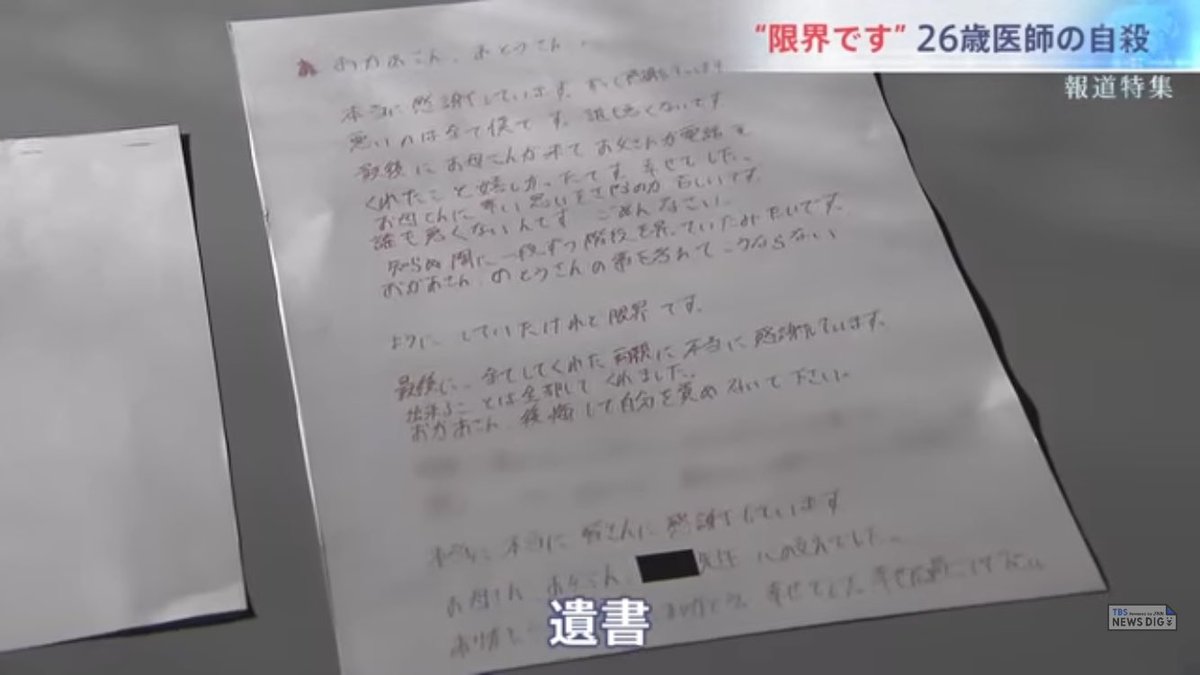 “限界です” 26歳医師の自殺
報道特集
おかあさん、おとうさん、
本当に感謝しています。
悪いのは全て僕です。誰も悪くないです
最後にお母さんが来てお父さんが電話を
くれたこと嬉しかったです。幸せでした。
お母さんに辛い思いをさせるのが苦しいです。
誰も悪くないんです ごめんなさい。
知らぬ間に一段ずつ階段を昇っていたみたいです。
おかあさん、おとうさんの事を考えてこうならない
ように していたけれど限界です。
最後に、全てしてくれた両親に本当に感謝しています。
出来ることは全部してくれました。
おかあさん、後悔して自分を責めないで下さい。
本当に本当に皆さんに感謝をしています
お母さん お父さん 先生
ありがとう 幸せでした。
遺書
TBS NEWS DIG
Powered by JNN